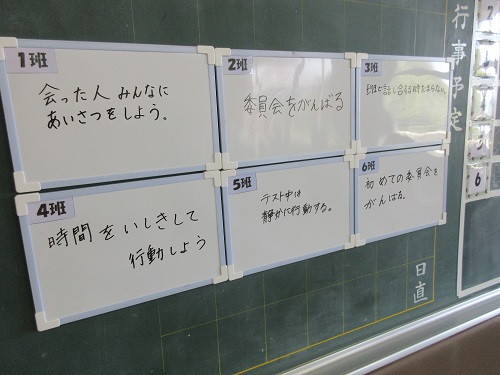 1班
会った人 みんなに
あいさつをしよう。
2班
委員会をがんばる
3班
4班
時間をいしきして
行動しよう
5班
テスト中は
静かに行動する。
6班
初めての委員会を
がんばる。
行事予定
日直
6